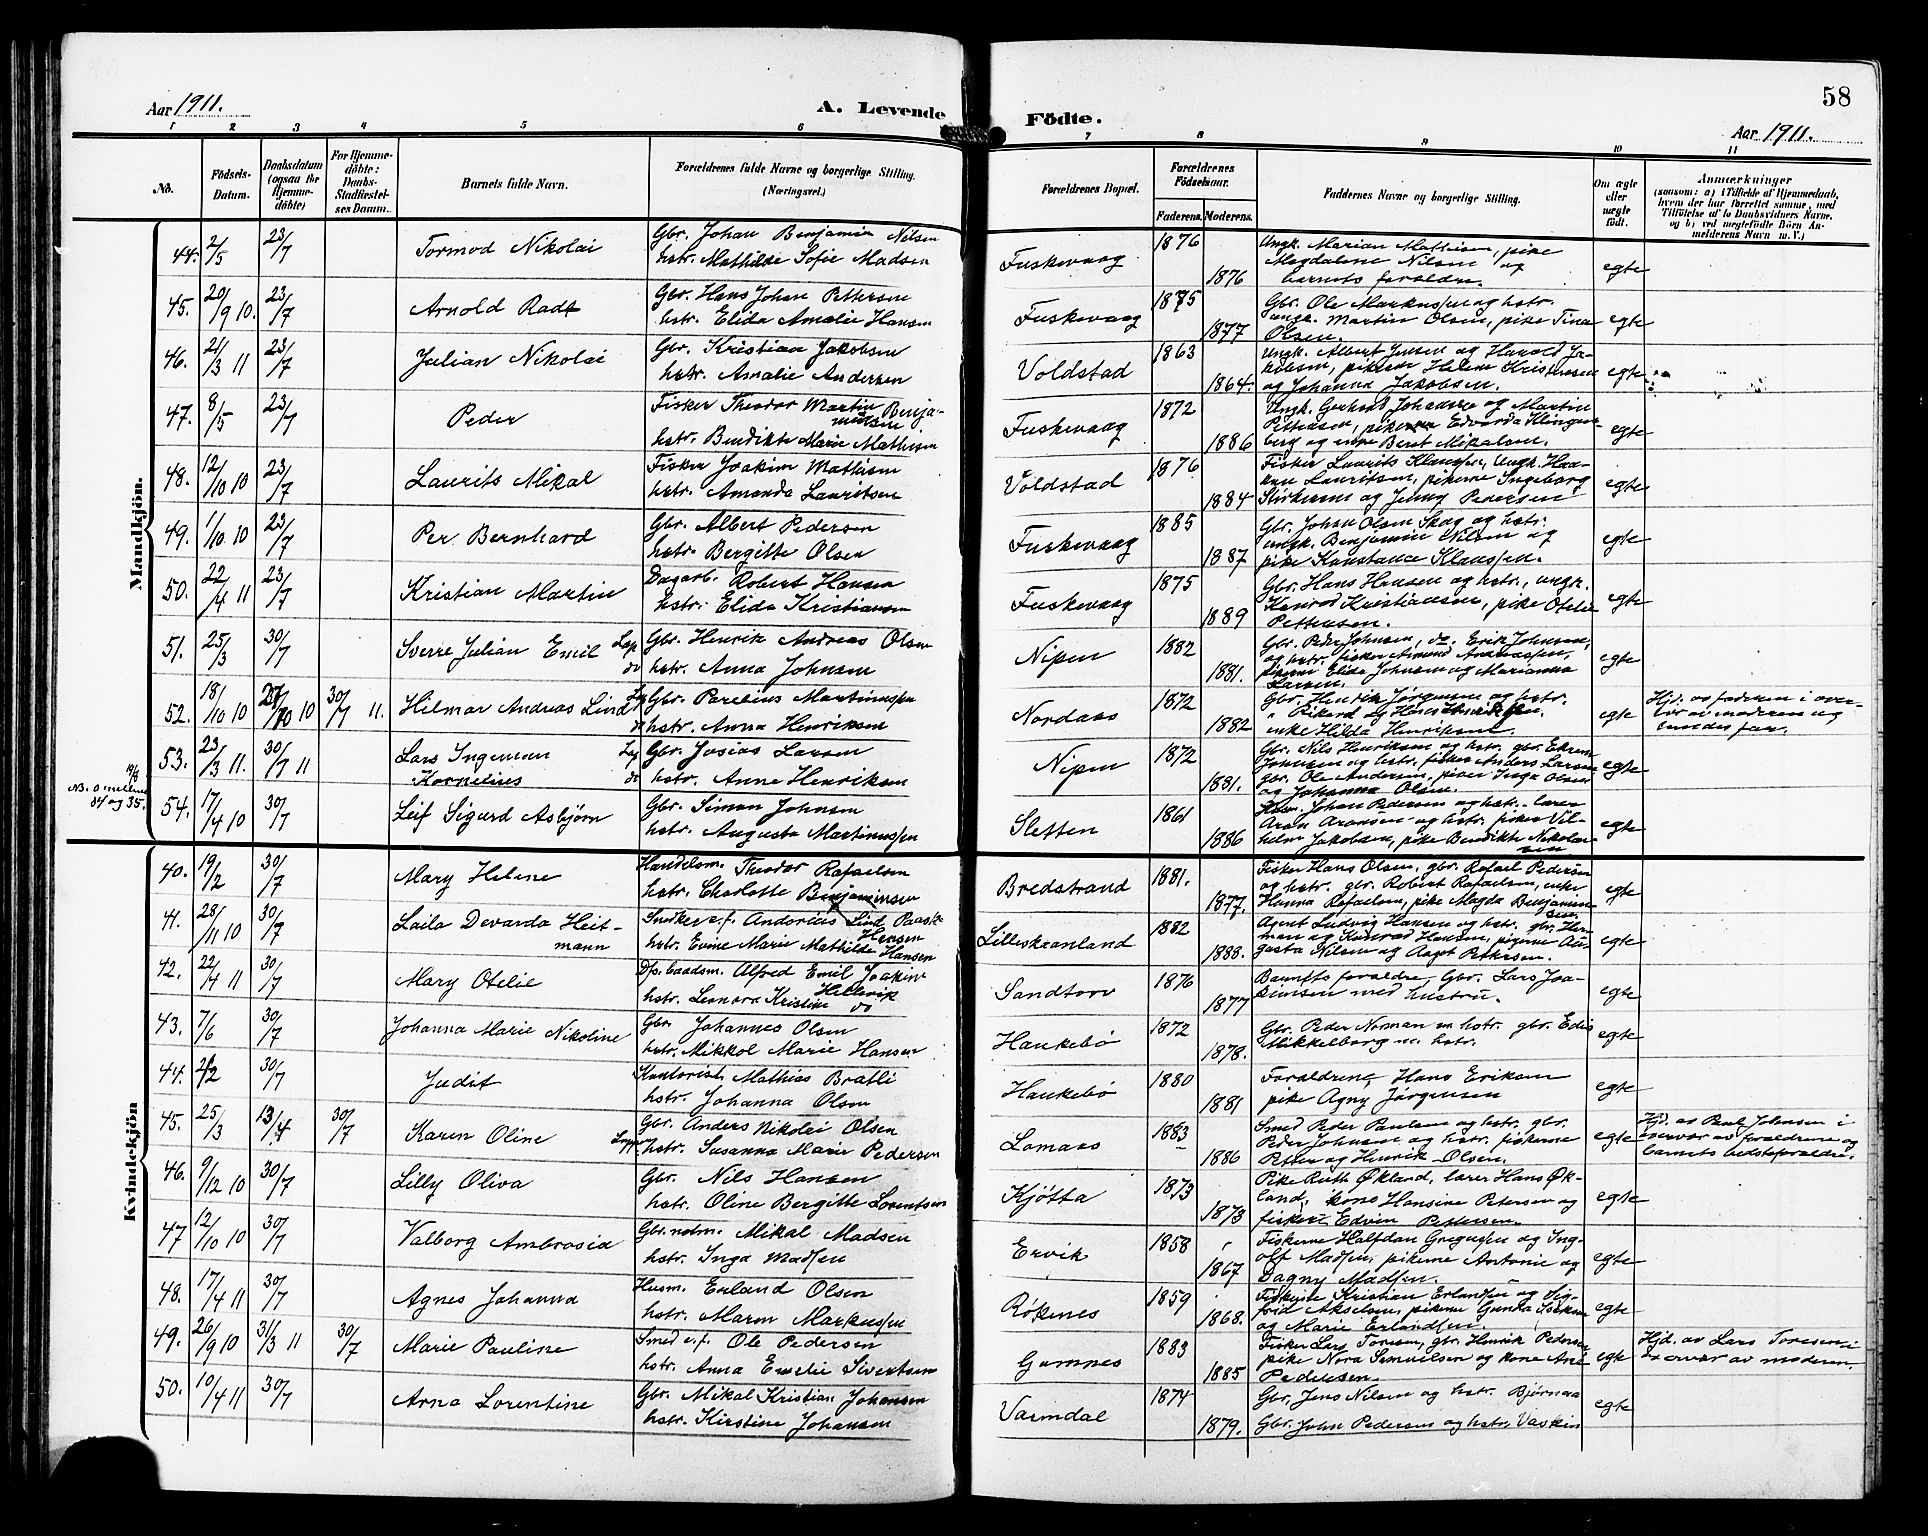 58
Aar 1911.
A. Levende Födte.
Aar 1911.
1 2 3 4 5 6 7 8 9 10 11
No.
Födsels-Datum.
Daabsdatum (ogsaa for Hjemme-döbte)
For Hjemme-döbte: Daabs-Stadfæstel-ses Datum.
Barnets fulde Navn.
Forældrenes fulde Navne og borgerlige Stilling.
(Næringsvei.)
Forældrenes Bopæl.
Forældrenes Födselsaar.
Faderens. Moderens.
Faddernes Navne og borgerlige Stilling.
Om ægte eller uægte födt.
Anmærkninger
(saasom: a) i Tilfælde af Hjemmedaab,
hvem der har forrettet samme, med
Tilföielse af to Daabsvidners Navne,
og b) ved uægtefödte Börn An-
melderens Navn m. V.)
Mandkjön.
44. 2/5 23/7 Tormod Nikolai Gbr. Johan Benjamin Nilsen Fuskevaag 1876 Ungk. Marian Mathisen, pike
hstr. Mathilde Sofie Madsen 1876 Magdalene Nilsen og barnets forældre. egte
45. 20/9 10. 23/7 Arnold Radt Gbr. Hans Johan Pettersen Fuskevaag 1875 Gbr. Ole Markussen og hstr.
hstr. Elida Amalie Hansen 1877 ungk. Martin Olsen, pike Tina Olsen. egte
46. 21/3 11 23/7 Julian Nikolai Gbr. Kristian Jakobsen Voldstad 1863 Ungk. Albert Jensen og Harold Ja-
hstr. Amalie Andersen 1864. kobsen, pikene Helene Kristensen og Johanna Jakobsen. egte
47. 8/5 23/7 Peder Fisker Theodor Martin Benja-minsen Fuskevaag 1872 Ungk. Gerhard Johansen og Martin
hstr. Bendikte Marie Mathisen 1886 Pettersen, pikerne Edvarda Klingen-berg og enke Beret Mikalsen. egte
48. 12/10 10 23/7 Laurits Mikal Fisker Joakim Mathisen Voldstad 1876 Fisker Laurits Klaussen, ungk. Haa-
hstr. Amanda Lauritsen 1884 kon Lauritsen, pikerne Ingeborg og Jenny Pedersen egte
49. 1/10 10 23/7 Per Bernhard Gbr. Albert Pedersen Fuskevaag 1885 Gbr. Johan Olsen Skog og hstr.
hstr. Bergitte Olsen 1887 ungk. Benjamin Nilsen og pike Konstance Klaussen. egte
50. 22/4 11 23/7 Kristian Martin Dagarb. Robert Hansen Fuskevaag 1875 Gbr. Hans Hansen og hstr., ungk.
hstr. Elida Kristiansen 1889 Konrad Kristiansen, pike Otelie Pettersen. egte
51. 25/3 30/7 Sverre Julian Emil Lap Gbr. Henrik Andreas Olsen Nipen 1882 Gbr. Peder Johnsen, do. Erik Johnsen,
do hstr. Anna Johnsen 1881. og hstr. fisker Amund Andreassen, pikerne Elida Johnsen og Marianna Larsen. egte
52. 18/10 10 10 30/7 11. Hilmar Andreas Lind Gbr. Parelius Martinussen Nordaas 1872 Gbr. Henrik Jørgensen og hstr.
hstr. Anna Henriksen 1882 " Rikard og Hans Henriksen. enke Hilda Henriksen. egte Hjd. av faderen i over-vær av moderen og
53. 23/3 11. 30/7 11 Lars Ingeman Gbr. Josias Larsen Nipen 1872 Gbr. Nils Henriksen og hstr. gbr.
Kornelius do hstr. Anne Henriksen 1881. Johnsen og hstr. fisker Anders Larsen gbr. Ole Andersen, piker Inga Olsen og Johanna Olsen. egte
34 og 35.
54. 17/4 10 30/7 Leif Sigurd Asbjørn Gbr. Simon Johnsen Sletten 1861 Johan Pedersen og hstr. lærer
hstr. Augusta Martinussen 1886 Aron Aronsen og hstr. piker Vil-helm Jakobsen, pike Bendikte Nikolai-sen egte
Kvindekjön
40. 19/2 30/7 Mary Helene Handelsm. Theodor Rafaelsen Bredstrand 1881. Fisker Hans Olsen, gbr. Rafael Pedersen
hstr. Charlotte Benjaminsen 1877. og hstr. gbr. Robert Rafaelsen, enke Hanna Rafaelsen, pike Magda Benjamin-sen egte
41. 28/11 10 30/7 Laila Devarda Heit-mann Snedker e.f. Andorias Hansen Lilleskaanland 1882 Agent Ludvig Hansen og hstr. gbr. Her-
hstr. Evine Marie Mathilde Hansen 1888. man og Konrad Hansen, pigerne Au-gusta Nilsen og Aagot Petersen. egte
42. 22/4 11 30/7 Mary Otelie Dps. baadsm. Alfred Emil Joakim Hellevik Sandtorv 1876 Barnets forældre, Gbr. Lars Joa-
hstr. Leonora Kristine do 1877 kimsen med hustru. egte
43. 7/6 30/7 Johanna Marie Nikoline Gbr. Johannes Olsen Haukebø 1872 Gbr. Peder Norman m. hstr. gbr. Edis
hstr. Mikkol Marie Hansen 1878. Mikkelborg m. hstr. egte
44. 30/7 Judit Kontorist Mathias Bratli Haukebø 1880 Forældrene, Hans Eriksen
hstr. Johanna Olsen 1881 pike Agny Jørgensen egte
45. 25/3 13/4 30/7 Karen Oline Lapper Gbr. Anders Nikolai Olsen Lomaas 1883 Smed Peder Paulsen og hstr. gbr.
hstr. Susanna Marie Pedersen 1886 Peder Johnsen og hstr. fiskerne Petter og Henrik Olsen. egte Hjd. av Paul Johnsen i overvær av forældrene og barnets bedsteforældre.
46. 9/12 10 30/7 Lilly Oliva Gbr. Nils Hansen Kjøtta 1873 Pike Ruth Økland, lærer Hans Øk-
hstr. Oline Bergitte Lorentsen 1873 land, kone Hansine Petersen og fisker Edvin Pettersen. egte
47 12/10 10 30/7 Valborg Ambrosia Gbr. Mikal Madsen Ervik 1858 Fiskerne Halfdan Gregusen og Ing-
hstr. Inga Madsen 1867 olf Madsen, pikerne Antonie og Dagny Madsen. egte
48. 17/4 11 30/7 Agnes Johanna Husm. Erland Olsen Røkenes 1859 Fiskerne Kristian Erlandsen og Sig-
hstr. Maren Markussen 1868. frid Akselsen, pikerne Gunda og Marie Erlandsen. egte
49. 26/9 10 31/3 11 30/7 Marie Pauline Smed e.f. Ole Pedersen Gamnes 1883 Fisker Lars Toresen, gbr. Henrik Pedersen
hstr. Anna Emelie Sivertsen 1885 pike Nora Samuelsen og kone Ane Pedersen. egte Hjd. av Lars Toresen i overvær av moderen.
50. 10/4 11 30/7 Arna Lorentine Gbr. Mikal Kristian Johansen Varmdal 1874 Gbr. Jens Nilsen og hstr. Bjørnaa
hstr. Kirstine Johansen 1879. Gbr. John Pedersen og hstr. Vasken egte